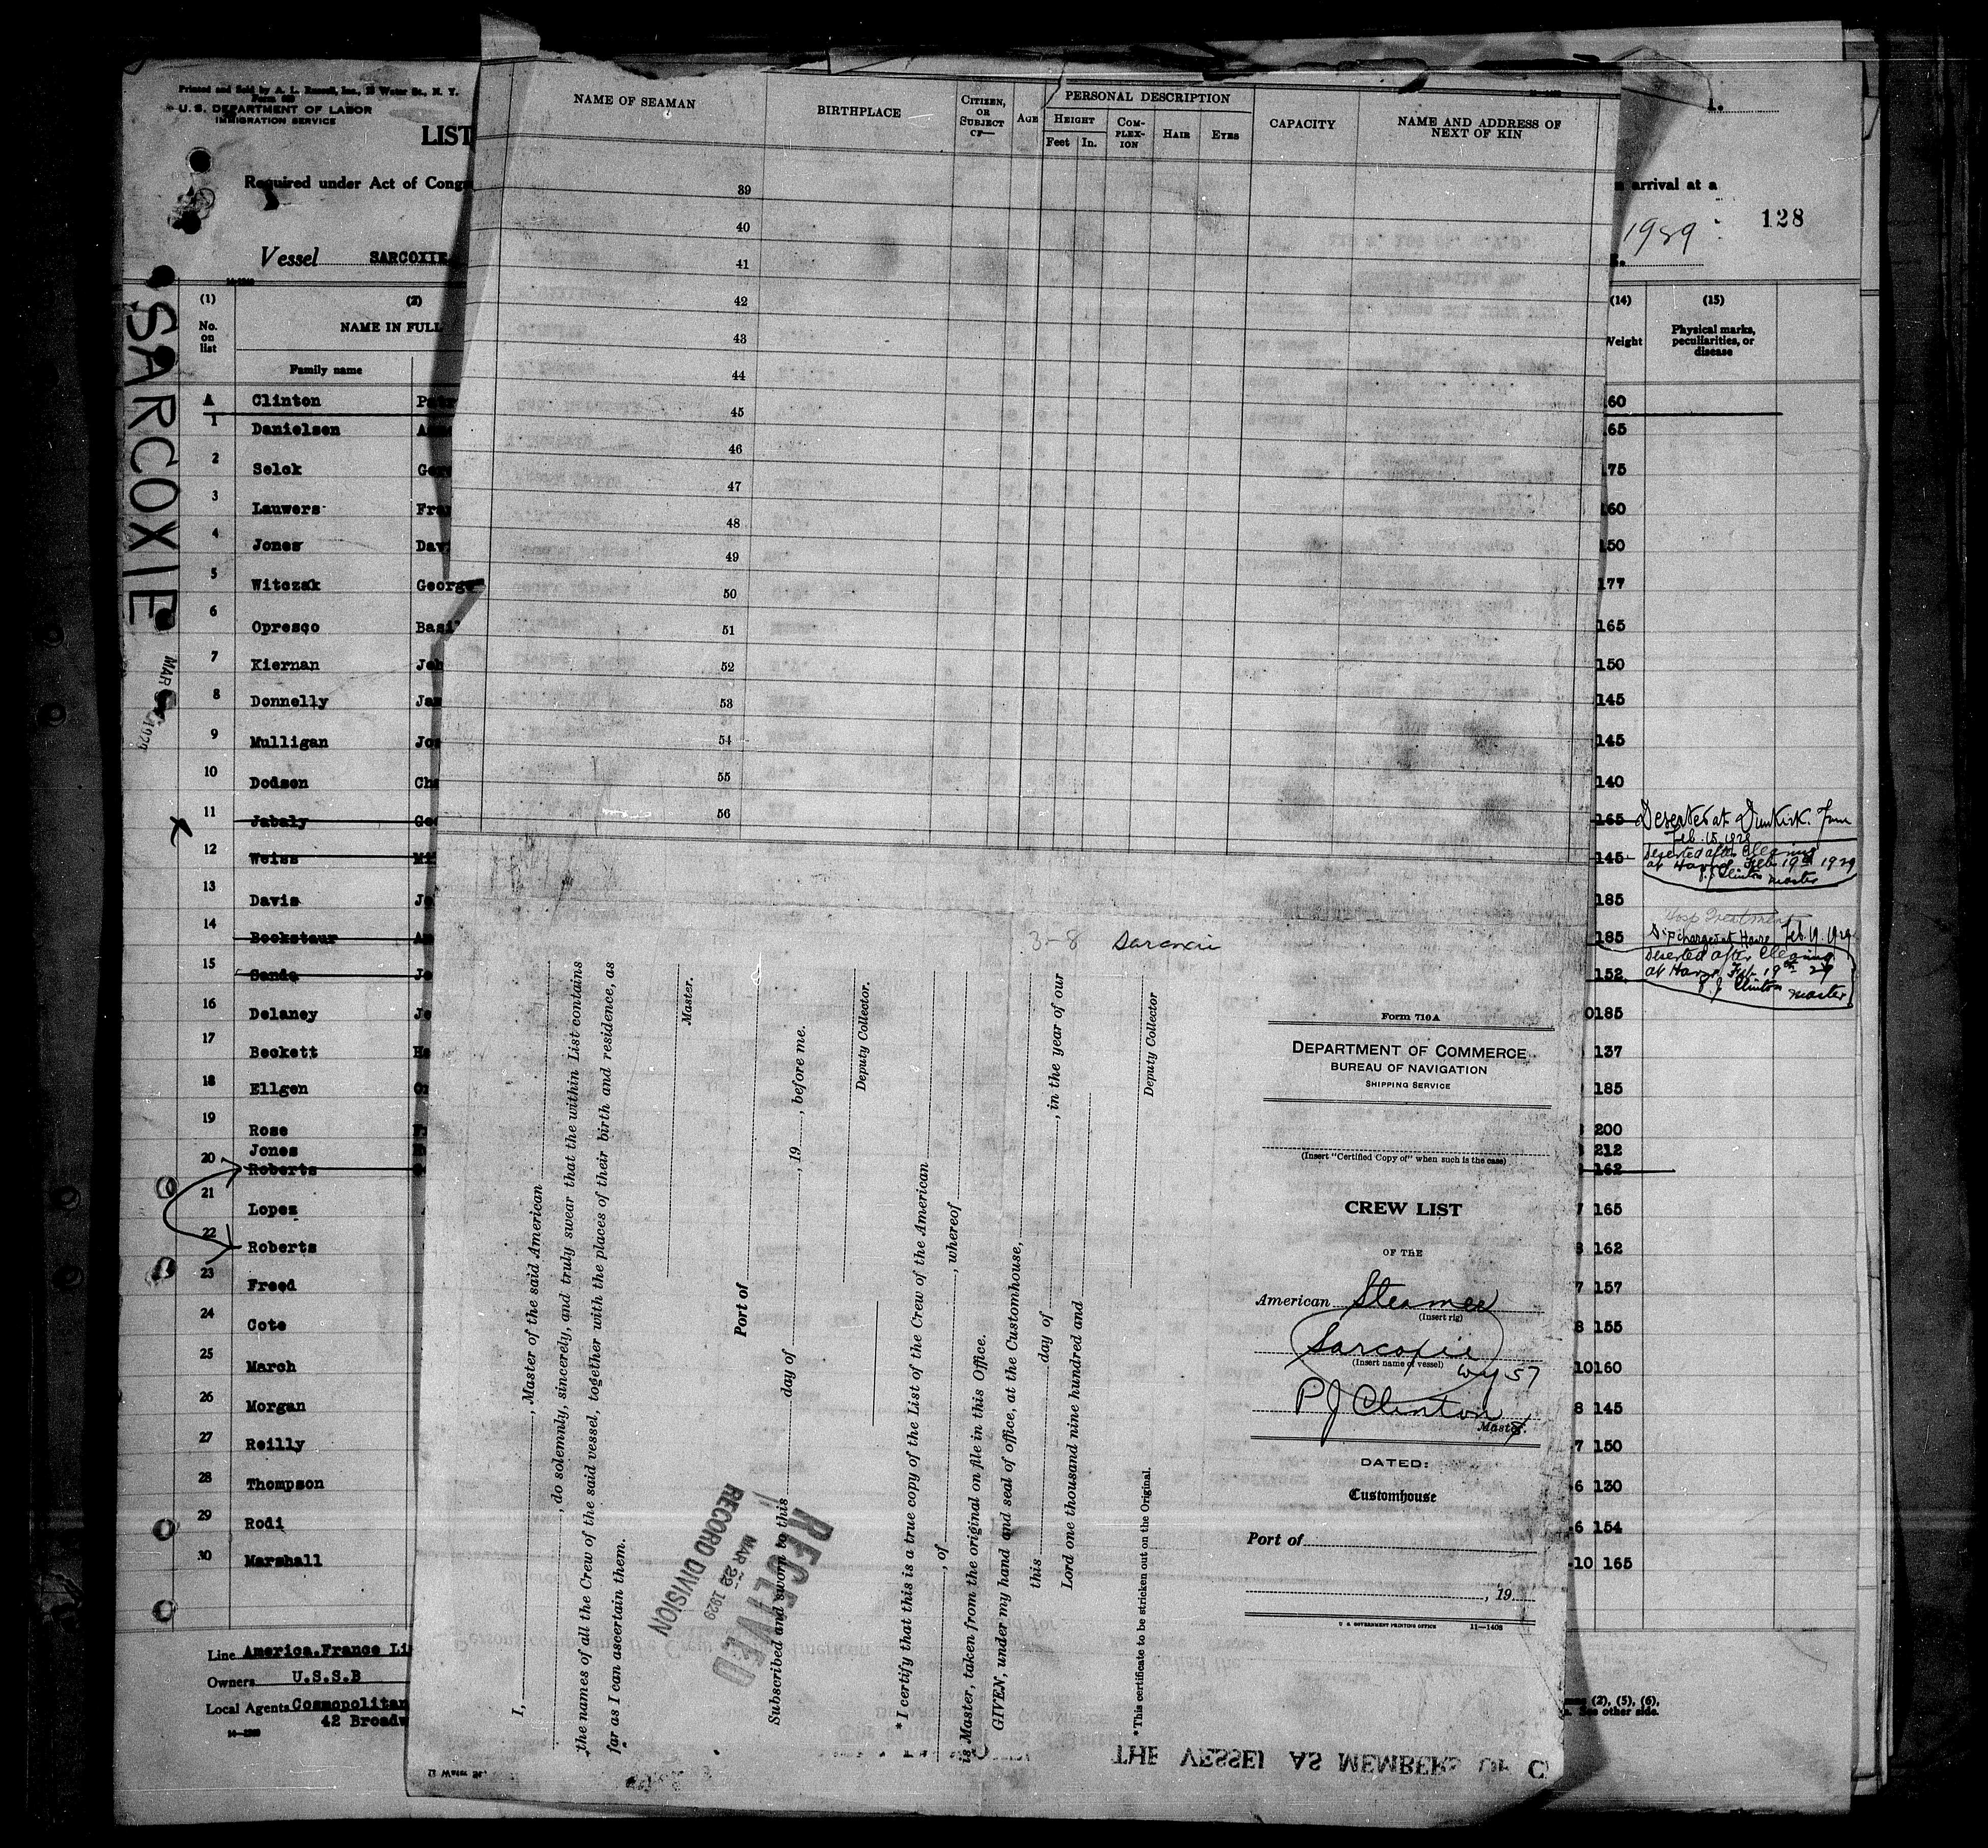 Printed and Sold by A. L. Russell, Inc., Water St., N. Y.
U. S. DEPARTMENT OF LABOR
IMMIGRATION SERVICE
LIST
Required under Act of Cong
arrival at a
1929
128
Vessel SARCOXIE
SARCOXIE
MAR
1929
(1) (2) (14) (15)
No. on list
NAME IN FULL
Family name
Weight
Physical marks, peculiarities, or disease
Clinton 160
1 Danielsen 165
2 Selek 175
3 Lauwers Fra 160
4 Jones Dav 150
5 Witczak George 177
6 Opresco Basi 165
7 Kiernan Joh 150
8 Donnelly Jam 145
9 Mulligan Jos 145
10 Dodsen Cha 140
11 Jabaly Geo 165 Deserted at Dunkirk
Feb. 15, 1929
12 Weiss Mi 145 Deserted after Clearing
at Havre Feb 19th 1929
P J Clinton master
13 Davis Jo 185
14 Bockstaur 185 Hosp Treatment
Discharged at Havre Feb. 19. 1929
15 Sande Jo 152 Deserted after Clearing
at Havre Feb 19th 29
P J Clinton master
16 Delaney Jo 0185
17 Beckett 137
18 Ellgen 185
19 Rose 200
Jones 212
20 Roberts 162
21 Lopez 165
22 Roberts 162
23 Freed 7 157
24 Cote 8 155
25 March 10160
26 Morgan 8 145
27 Reilly 7 150
28 Thompson 6 130
29 Rodi 6 154
30 Marshall 10 165
Line America.France Li
Owners U.S.S.B
Local Agents Cosmopolitan
42 Broadw
(2), (5), (6).
See other side.
NAME OF SEAMAN
BIRTHPLACE
CITIZEN, OR SUBJECT OF—
AGE
PERSONAL DESCRIPTION
HEIGHT
Feet In.
COM-PLEX-ION
HAIR
EYES
CAPACITY
NAME AND ADDRESS OF NEXT OF KIN
39
40
41
42
43
44
45
46
47
48
49
50
51
52
53
54
55
56
3-8
I, , Master of the said American
, do solemnly, sincerely, and truly swear that the within List contains
the names of all the Crew of the said vessel, together with the places of their birth and residence, as
far as I can ascertain them.
Master.
Port of
Subscribed and sworn to this day of , 19 , before me.
Deputy Collector.
*I certify that this is a true copy of the List of the Crew of the American
, of , whereof
is Master, taken from the original on file in this Office.
GIVEN, under my hand and seal of office, at the Customhouse,
this day of , in the year of our
Lord one thousand nine hundred and
Deputy Collector
*This certificate to be stricken out on the Original.
RECEIVED
MAR 22 1929
RECORD DIVISION
Form 710A
DEPARTMENT OF COMMERCE
BUREAU OF NAVIGATION
SHIPPING SERVICE
(Insert "Certified Copy of" when such is the case)
CREW LIST
OF THE
American Steamer
(Insert rig)
Sarcoxie
(Insert name of vessel)
P J Clinton
Master.
DATED:
Customhouse
Port of
, 19
U. S. GOVERNMENT PRINTING OFFICE 11—1403
THE VESSEL AS MEMBERS OF C